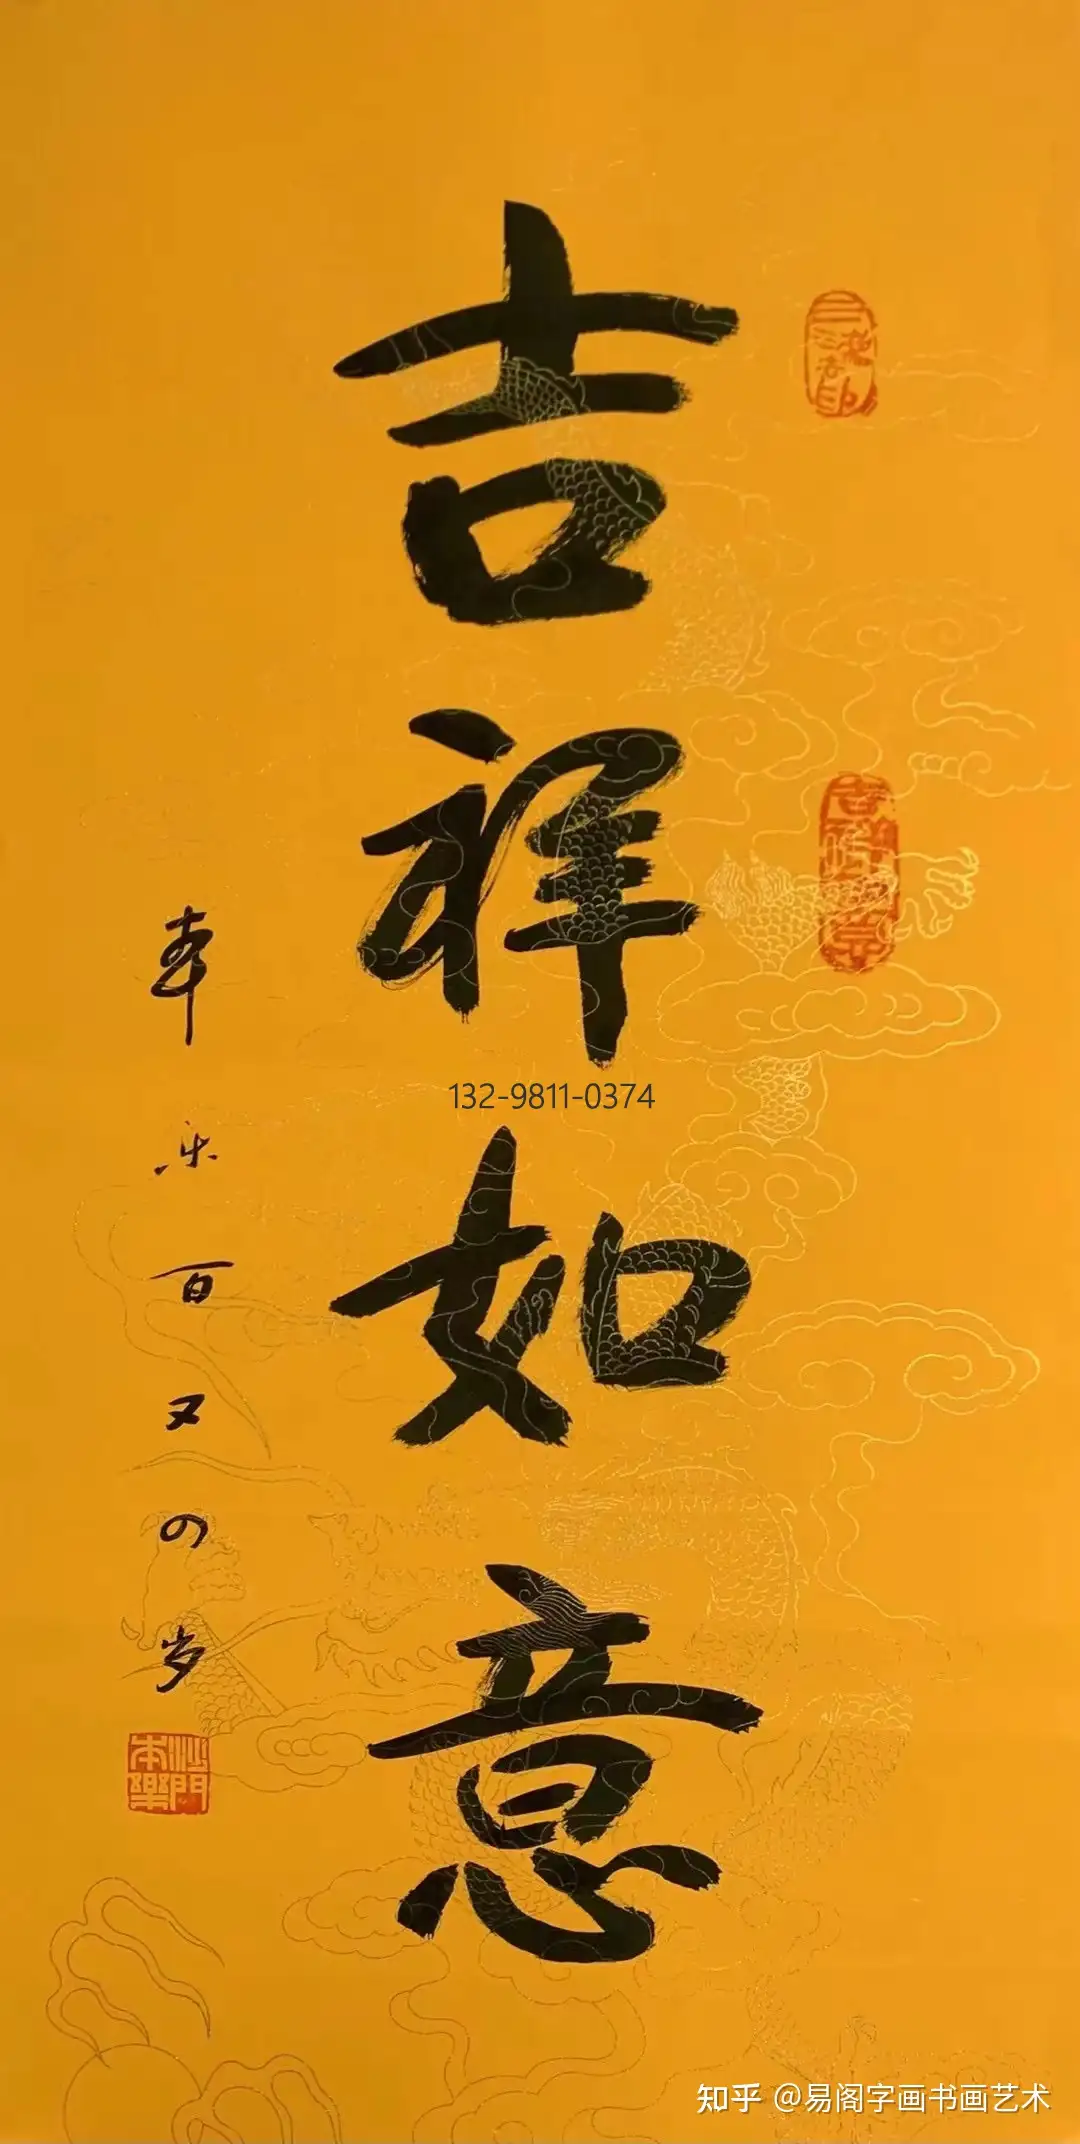 吉祥如意
本乐百又四岁
沙門本樂
132-9811-0374
知乎 @易阁字画书画艺术